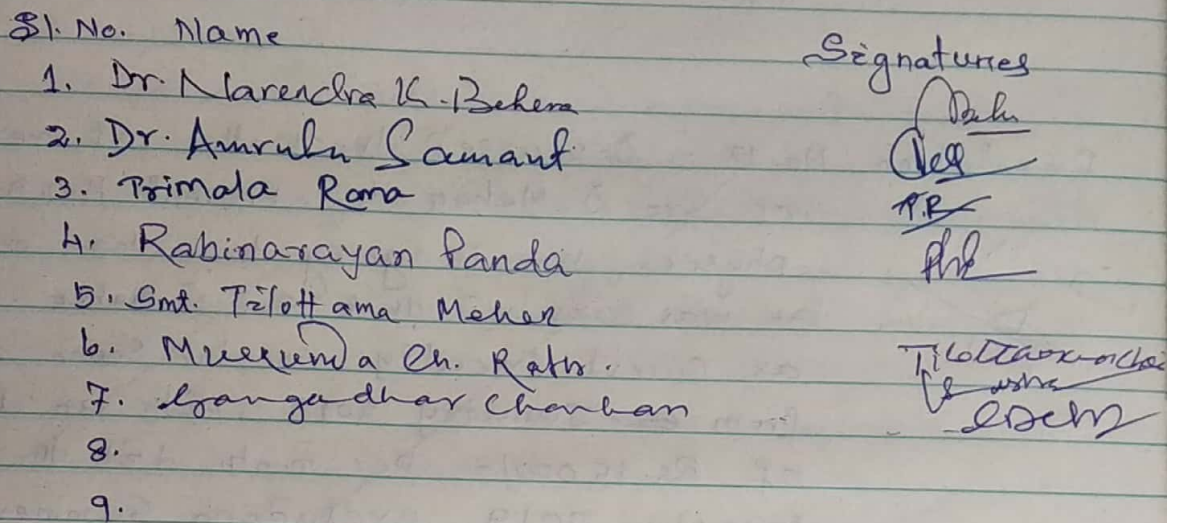 Sl. No. Name Signatures
1. Dr. Narendra K. Behera
2. Dr. Amruta Samant
3. Trimala Rana T.R
4. Rabinarayan Panda
5. Smt. Tilottama Meher
6. Mukunda Ch. Rath.
7. Gangadhar Chauhan
8.
9.